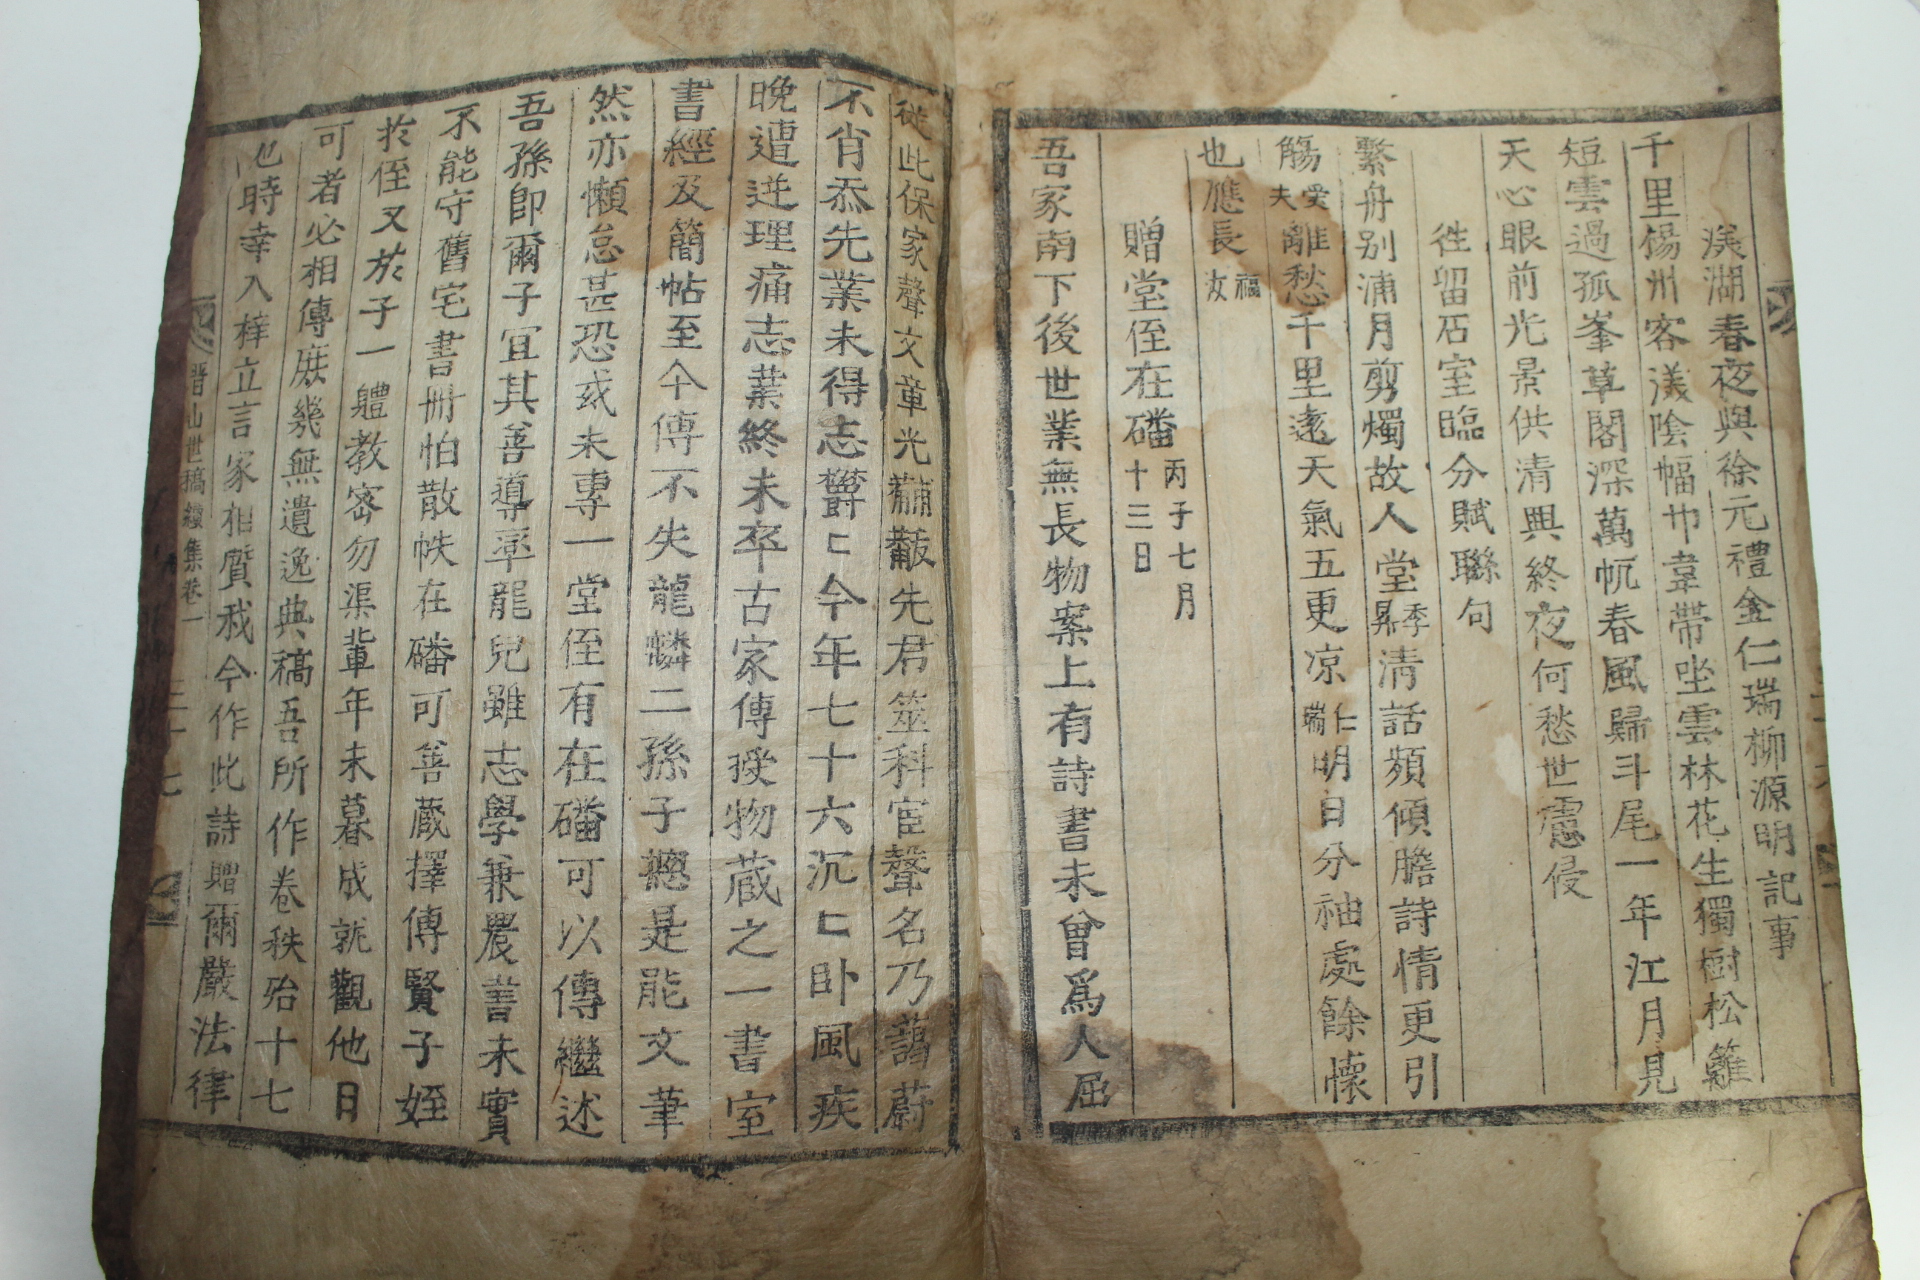 渼湖春夜與徐元禮金仁瑞柳源明記事
千里楊州客渼陰幅巾韋帶坐雲林花生獨樹松籬
短雲過孤峯草閣深萬帆春風歸斗尾一年江月見
天心眼前光景供清興終夜何愁世慮侵
徃留石室臨分賦聯句
繫舟別浦月剪燭故人堂季昇清話頻傾膽詩情更引
觴愛夫離愁千里遠天氣五更凉仁瑞明日分袖處餘懷
也應長福汝
贈堂侄在磻丙子七月十三日
吾家南下後世業無長物案上有詩書未曾爲人屈
從此保家聲文章光黼黻先君筮科宦聲名乃藹蔚
不肖忝先業未得志欝〻今年七十六沉〻卧風疾
晩遭逆理痛志業終未卒古家傳授物蔵之一書室
書經及簡帖至今傳不失龍麟二孫子摠是能文筆
然亦懶怠甚恐或未專一堂侄有在磻可以傳繼述
吾孫即爾子冝其善導率龍兒雖志學兼農書未實
不能守舊宅書冊怕散帙在磻可善蔵擇傳賢子姪
扵侄又扵子一軆教宻勿渠輩年未暮成就觀他日
可者必相傳庶幾無遺逸典稿吾所作卷秩殆十七
也時幸入梓立言家相質我今作此詩贈爾嚴法律
晋山世稿續集卷一
三十七